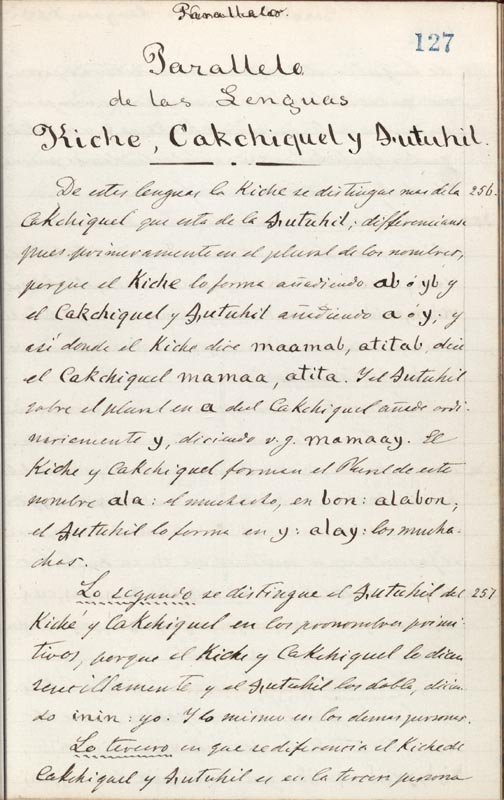 Paralelo.
127
Parallelo
de las Lenguas
Kiche, Cakchiquel y Sutuhil.
De estas lenguas la Kiche se distingue mas de la 256.
Cakchiquel que esta de la Sutuhil; differencianse
pues primeramente en el plural de los nombres,
porque el Kiche lo forma añadiendo ab ó yb y
el Cakchiquel y Sutuhil añadiendo a ó y; y
así donde el Kiche dice maamab, atitab, dice
el Cakchiquel mamaa, atita. Y el Sutuhil
sobre el plural en a del Cakchiquel añade ordi-
nariamente y, diciendo v.g. mamaay. El
Kiche y Cakchiquel forman el Plural de este
nombre ala: el muchacho, en bon: alabon;
el Sutuhil lo forma en y: alay: los mucha-
chos.
Lo segundo se distingue el Sutuhil del 257
Kiché y Cakchiquel en los pronombres primi-
tivos, porque el Kiche y Cakchiquel lo dicen
sencillamente y el Sutuhil los dobla, dicien-
do inin: yo. Y lo mismo en los demas personas.
Lo tercero en que se diferencia el Kiche de
Cakchiquel y Sutuhil es en la tercera persona